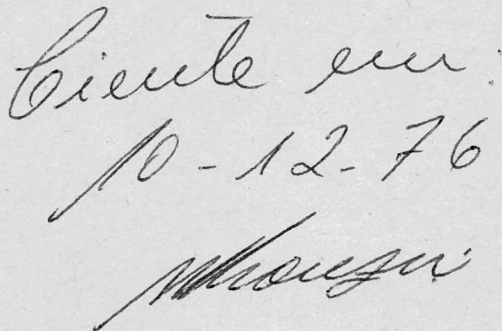 Ciente em:
10-12-76